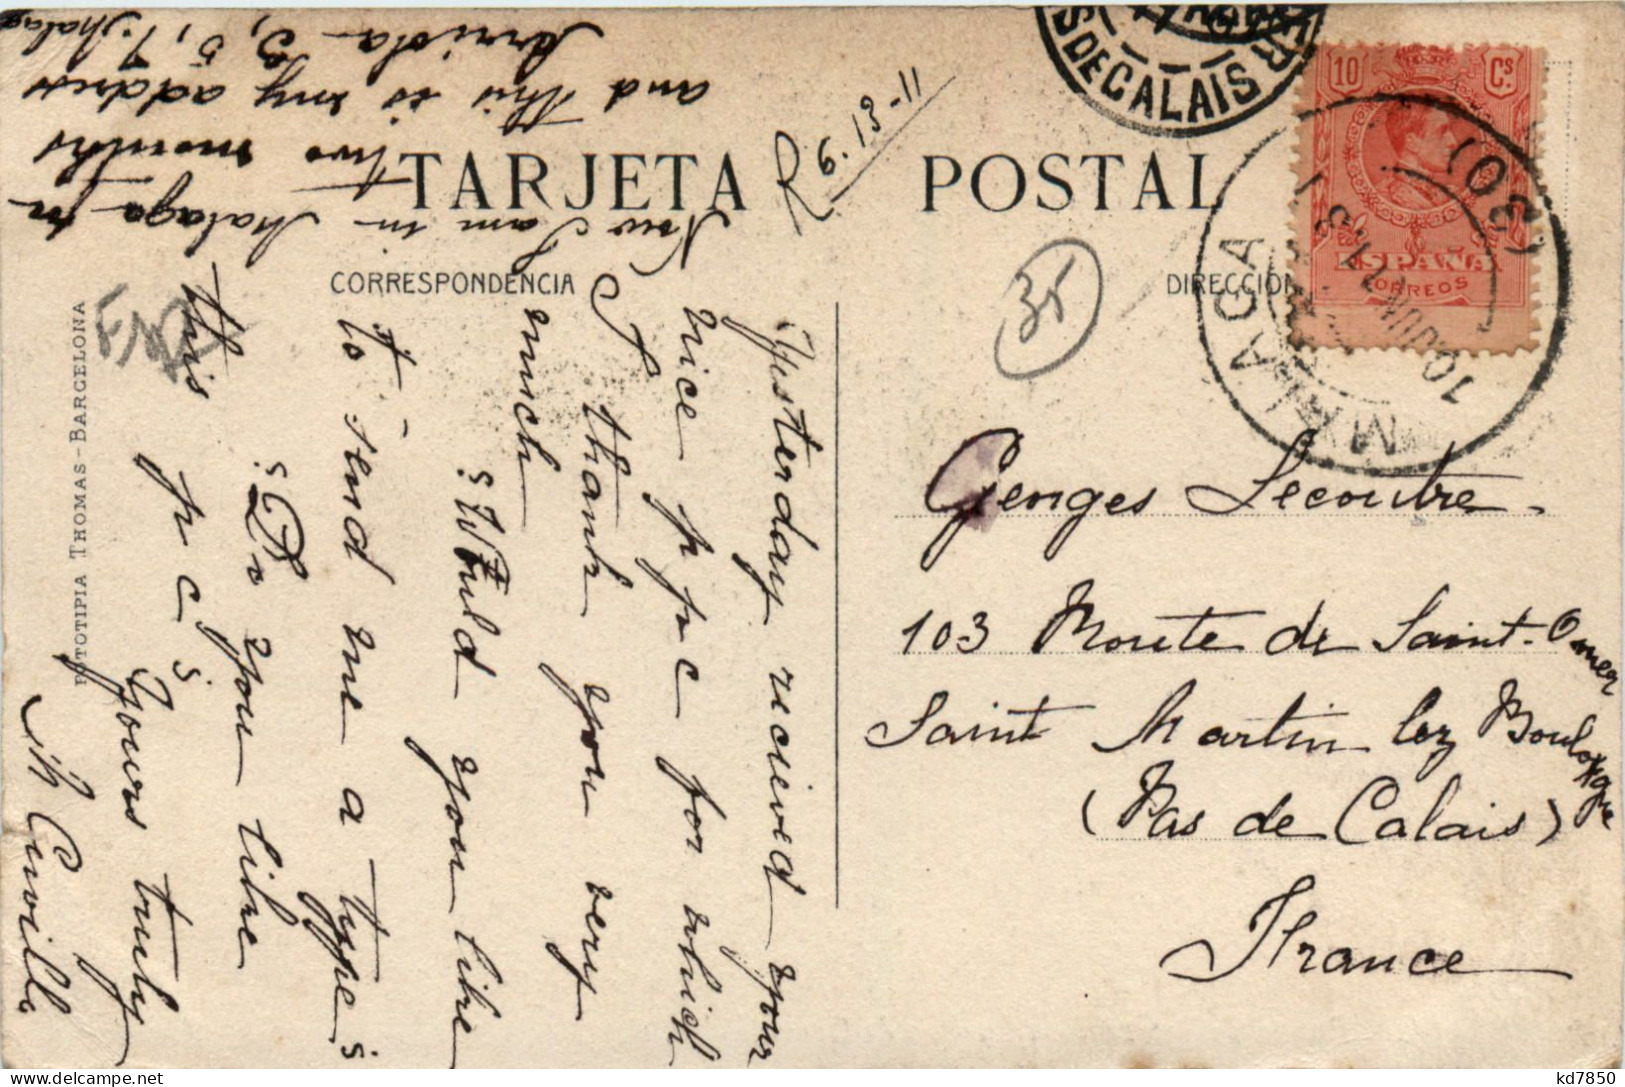 TARJETA POSTAL
CORRESPONDENCIA
DIRECCIÓN
FOTOTIPIA THOMAS - BARCELONA
6.13-11
35
S DE CALAIS
10 Cs
ESPAÑA
CORREOS
MALAGA
(30)
Georges Lecoutre
103 Route de Saint-Omer
Saint Martin lez Boulogne
(Pas de Calais)
France
Yesterday recieved your
nice p p c for which
I thank you very
much
¿Would you like
to send me a type?
¿Do you like
this p c?
Yours truly
Now I am in Malaga in
two months
and this is my address
Arriola 3, 5, 7. Malaga
kd7850